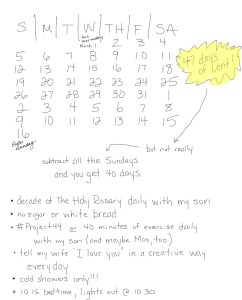 S | M | T | W | TH | F | SA
Ash Wednesday
March 1
2 3 4
5 6 7 8 9 10 11
12 13 14 15 16 17 18
19 20 21 22 23 24 25
26 27 28 29 30 31 1
2 3 4 5 6 7 8
9 10 11 12 13 14 15
16
Easter Sunday!
47 days
of Lent!!
but not really
subtract all the Sundays
and you get 40 days.
• decade of The Holy Rosary daily with my son
• no sugar or white bread
• #Project44 or 40 minutes of exercise daily
with my son (and maybe Moo, too)
• tell my wife "I love you" in a creative way
every day
• cold showers only!!!
• 10:15 bedtime, lights out @ 10:30